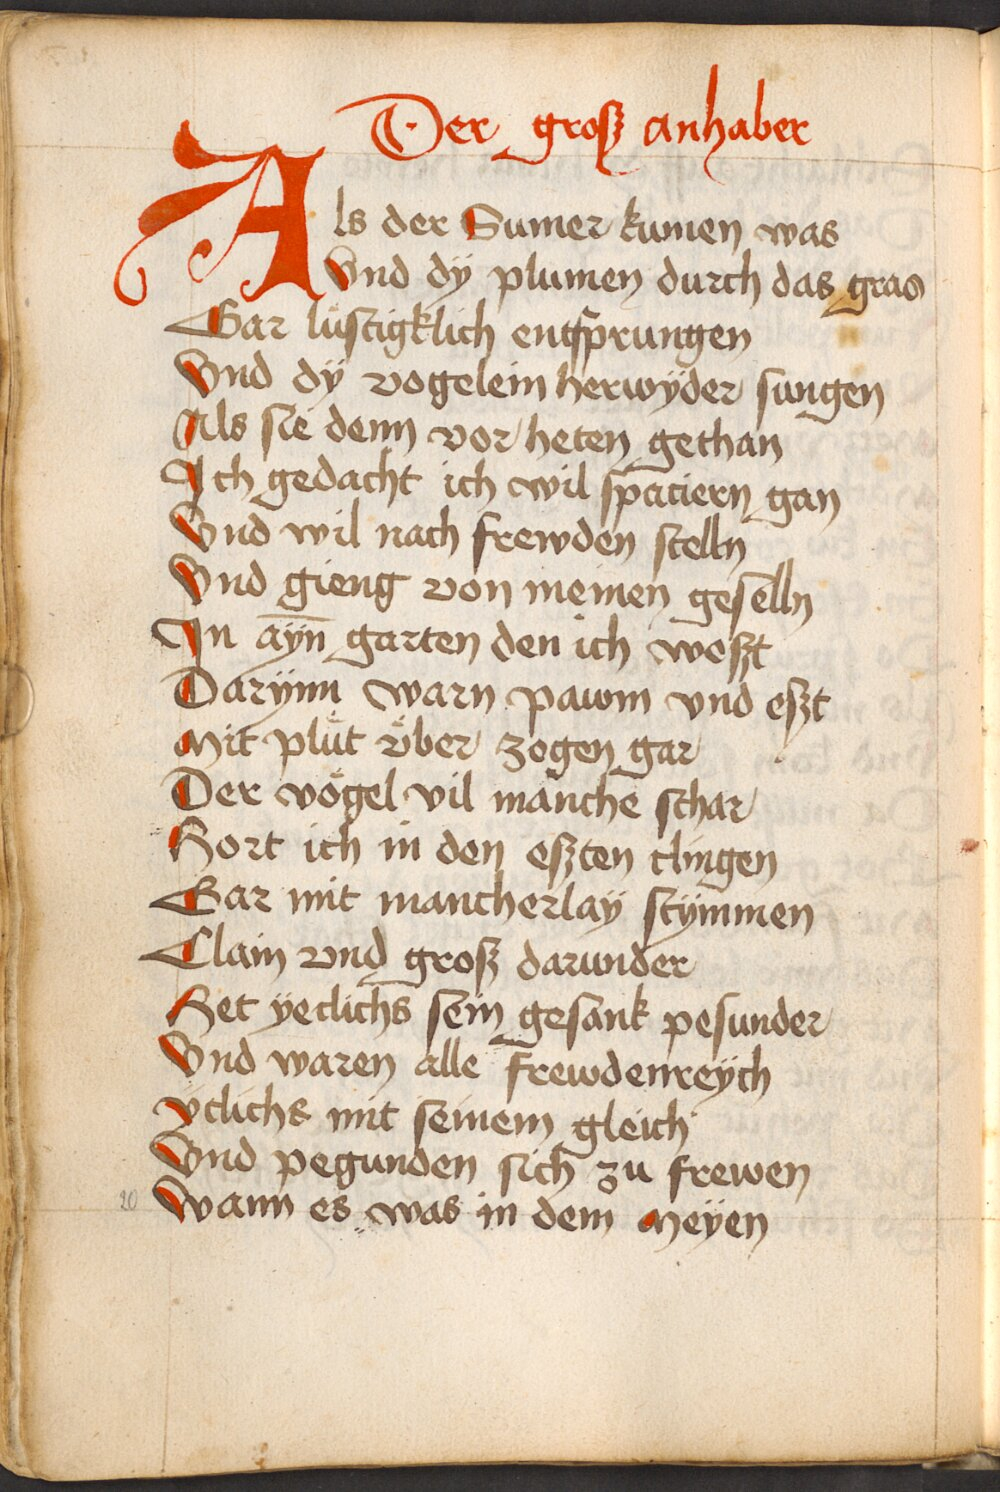 Der groß anhaber
Als der Sumer kumen was
Vnd dÿ plumen durch das gras
Gar lustigklich entsprungen
Vnd dÿ vogelein herwyder sungen
Als sie denn vor heten gethan
Ich gedacht ich wil spaciern gan
Vnd wil nach frewden stelln
Vnd gieng von meinen geselln
In aÿn garten den ich weszt
Darÿnn warn pawm vnd eszt
Mit plüt vͤber zogen gar
Der vögel vil manche schar
Hort ich in den eszten clingen
Gar mit mancherlaÿ stÿmmen
Clain vnd groß darunder
Het ÿeclichs sein gesank pesunder
Vnd waren alle frewdenreÿch
Yclichs mit seinem gleich
Vnd pegunden sich zu frewen
Wann es was in dem Meÿen
20